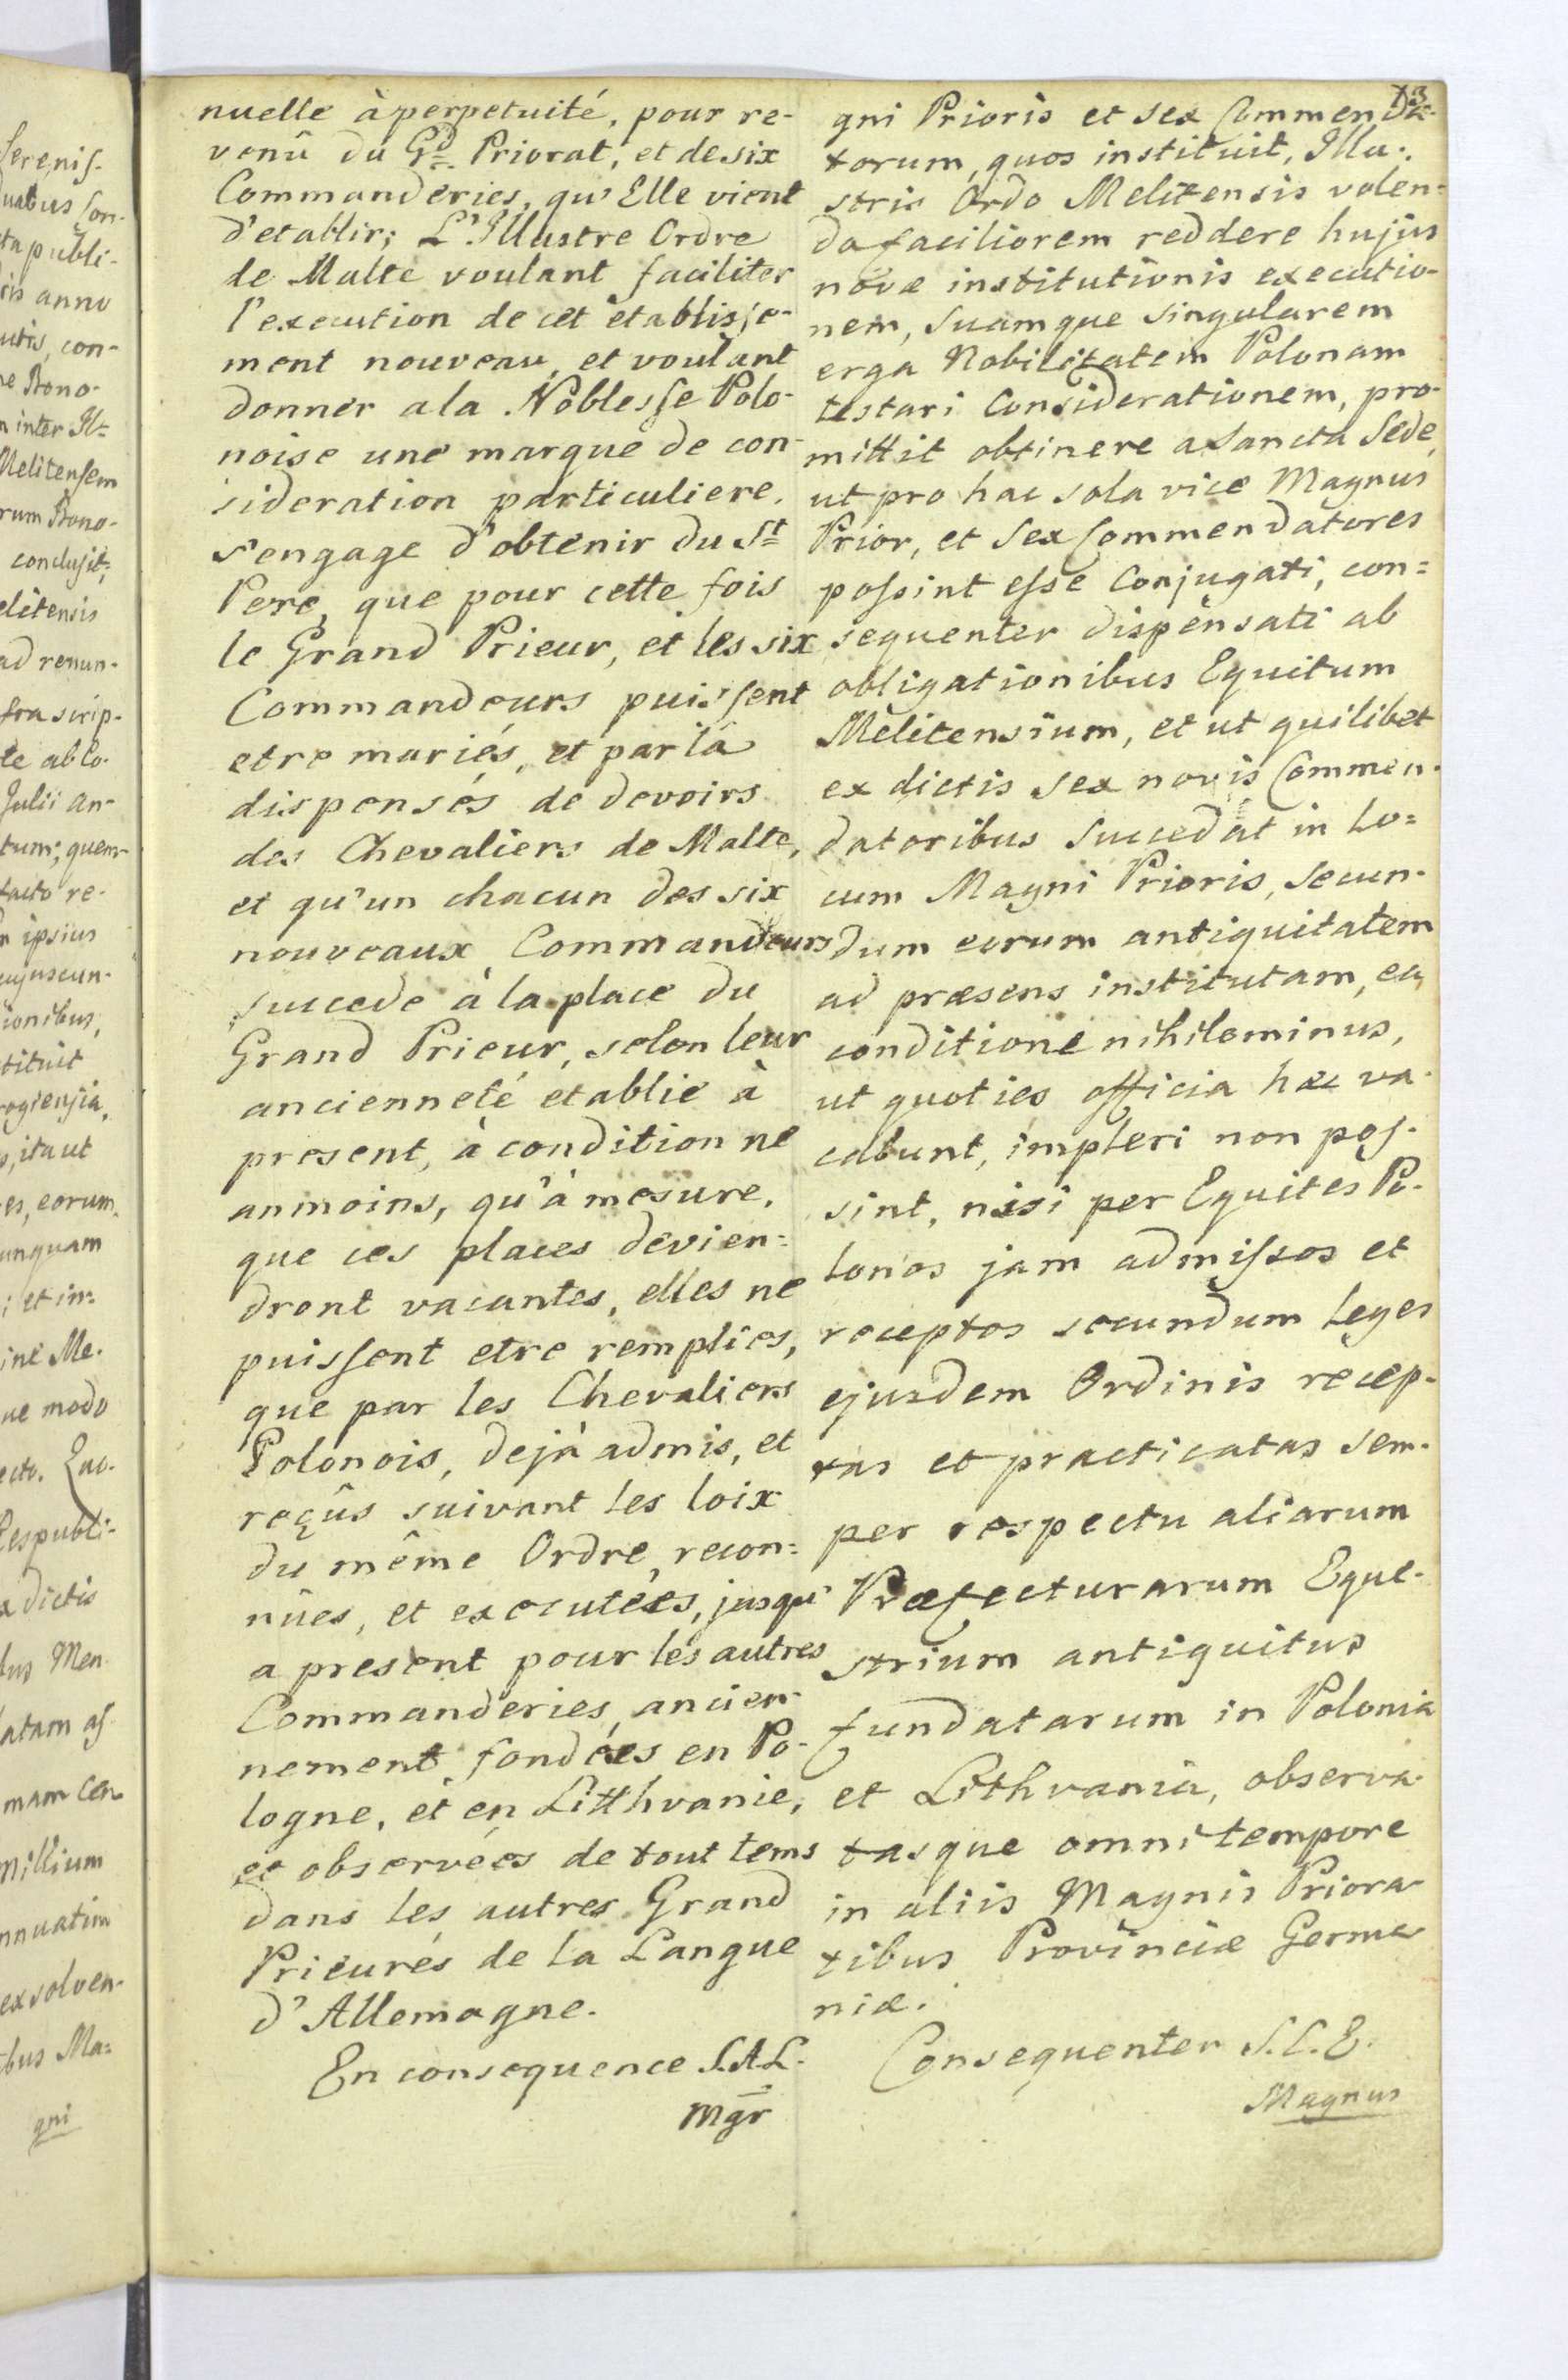 nuelle à perpetuité, pour re-
venû du Gd Priorat, et de six
Commanderies, qu'Elle vient
d'etablir; L'Illustre Ordre
de Malte voulant faciliter
l'execution de cet etablisse-
ment nouveau, et voulant
donner a la Noblesse Polo-
noise une marque de con-
sideration particuliere.
s'engage d'obtenir du St
Pere, que pour cette fois
le Grand Prieur, et les six
Commandeurs puissent
etre mariés, et par là
dispensés de devoirs
des Chevaliers de Malte,
et qu'un chacun des six
nouveaux Commandeurs
succede à la place du
Grand Prieur, selon leur
ancienneté etablie à
present, à condition ne
anmoins, qu'à mesure,
que ces places devien=
dront vacantes, elles ne
puissent etre remplies,
que par les Chevaliers
Polonois, dejà admis, et
reçûs suivant les loix
du même Ordre, recon=
nûes, et executées, jusqu'
a present pour les autres
Commanderies, ancien-
nement fondées en Po-
logne, et en Litthvanie,
et observées de tout tems
dans les autres Grand
Prieurés de la Langue
d'Allemagne.
En consequence S.A.E.
Mgr
gni Prioris et sex Commenda-
torum, quos instituit, Illu-
stris Ordo Melitensis volen-
do faciliorem reddere hujus
novæ institutionis executio-
nem, suamque singularem
erga Nobilitatem Polonam
testari Considerationem, pro-
mittit obtinere a Sancta Sede,
ut pro hac sola vice Magnus
Prior, et Sex Commendatores
possint esse Conjugati, con=
sequenter dispensati ab
obligationibus Equitum
Melitensium, et ut quilibet
ex dictis sex novis Commen-
datoribus Succedat in lo=
cum Magni Prioris, secun-
dum eorum antiquitatem
ad præsens institutam, ea
conditione nihilominus,
ut quoties officia hæc va-
cabunt, impleri non pos-
sint, nisi per Equites Po-
lonos jam admissos et
receptos secundum leges
ejusdem Ordinis recep-
tas et practicatas sem-
per respectu aliarum
Præfecturarum Eque-
strium antiquitus
fundatarum in Polonia
et Lithvania, observa-
tasque omni tempore
in aliis Magnis Priora-
tibus Provinciæ Germa-
niæ.
Consequenter S.C.E.
Magnus
Serenis-
ta publi-
is anno
utis, con-
e Bono-
n inter Il=
Melitensem
rum Bono-
conclusit;
elitensis
ad renun-
fra scrip-
te ab Co-
Julii an-
tum; quem-
facto re-
n ipsius
cujuscun-
ionibus,
stituit
, ita ut
es, eorum-
unquam
; et in=
ine Me-
ue modo
Respubli-
x dictis
bus Men-
latam as-
mam Cen-
millium
nnuatim
exsolven-
bus Ma=
gni